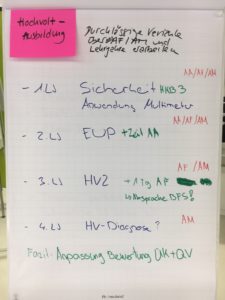 Hochvolt-
Ausbildung
Durchlässige Vertikale
über AF/AM und
Lehrjahre erarbeiten
AA/AF/AM
- 1.LJ Sicherheit HKB3
Anwendung Multimeter
AA/AF/AM
- 2.LJ EUP +Ziel AA
AF / AM
- 3.LJ HV2 +1 Tg AF
Absprache DFS?
AM
- 4.LJ HV-Diagnose?
Fazit - Anpassung Bewertung ÜK+QV